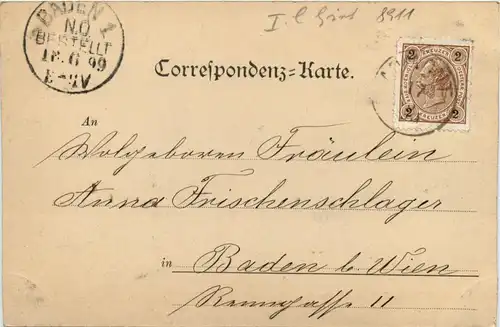 BADEN 1
N.Ö.
BESTELLT
8911
Correspondenz-Karte.
2 2
2 2
An
Wolgeboren Fräulein
Anna Frischenschlager
in Baden b. Wien
Renngasse 11